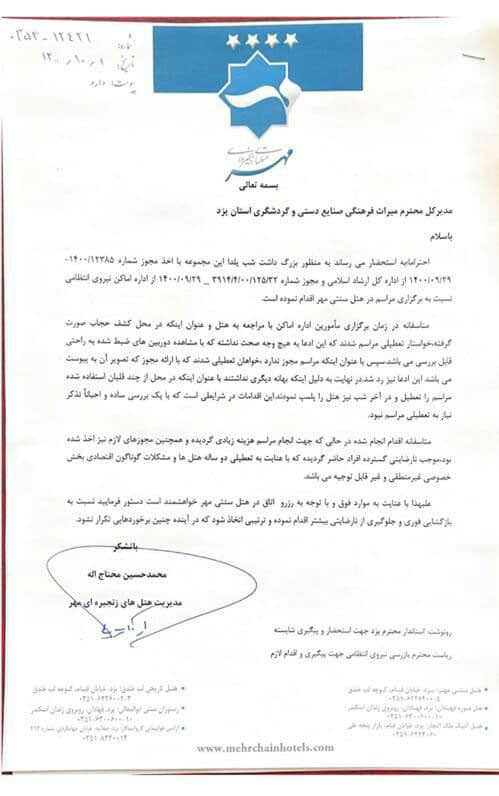 شماره: ۰۳۵۳-۱۲۴۲۱
تاریخ: ۱۴۰۰/۱۰/۱
پیوست: دارد
مهر
بسمه تعالی
مدیرکل محترم میراث فرهنگی صنایع دستی و گردشگری استان یزد
باسلام
احترامابه استحضار می رساند به منظور بزرگ داشت شب یلدا این مجموعه با اخذ مجوز شماره ۱۴۰۰/۱۲۳۸۵-
۱۴۰۰/۰۹/۲۹ از اداره کل ارشاد اسلامی و مجوز شماره ۳۹۱۴/۴/۰۰/۱۲۵/۳۲ _ ۱۴۰۰/۰۹/۲۹ از اداره اماکن نیروی انتظامی
نسبت به برگزاری مراسم در هتل سنتی مهر اقدام نموده است.
متاسفانه در زمان برگزاری مأمورین اداره اماکن با مراجعه به هتل و عنوان اینکه در محل کشف حجاب صورت
گرفته،خواستار تعطیلی مراسم شدند که این ادعا به هیچ وجه صحت نداشته که با مشاهده دوربین های ضبط شده به راحتی
قابل بررسی می باشد.سپس با عنوان اینکه مراسم مجوز ندارد ،خواهان تعطیلی شدند که با ارائه مجوز که تصویر آن به پیوست
می باشد. این ادعا نیز رد شد.در نهایت به دلیل اینکه بهانه دیگری نداشتند با عنوان اینکه در محل از چند قلیان استفاده شده
مراسم را تعطیل و در آخر شب نیز هتل را پلمپ نمودند.این اقدامات در شرایطی است که با یک بررسی ساده و احیاناً تذکر
نیاز به تعطیلی مراسم نبود.
متاسفانه اقدام انجام شده در حالی که جهت انجام مراسم هزینه زیادی گردیده و همچنین مجوزهای لازم نیز اخذ شده
بود،موجب نارضایتی گسترده افراد حاضر گردیده که با عنایت به تعطیلی دو ساله هتل ها و مشکلات گوناگون اقتصادی بخش
خصوصی غیرمنطقی و غیر قابل توجیه می باشد.
علیهذا با عنایت به موارد فوق و با توجه به رزرو اتاق در هتل سنتی مهر خواهشمند است دستور فرمایید نسبت به
بازگشایی فوری و جلوگیری از نارضایتی بیشتر اقدام نموده و ترتیبی اتخاذ شود که در آینده چنین برخوردهایی تکرار نشود.
باتشکر
محمدحسین محتاج اله
مدیریت هتل های زنجیره ای مهر
رونوشت: استاندار محترم یزد جهت استحضار و پیگیری شایسته
ریاست محترم بازرسی نیروی انتظامی جهت پیگیری و اقدام لازم
هتل سنتی مهر: یزد، خیابان قیام، کوچه لب خندق
هتل تاریخی لب خندق: یزد، خیابان قیام، کوچه لب خندق
www.mehrchainhotels.com